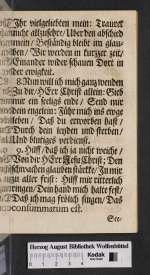 Ihr vielgeliebten mein: Trauret
nicht allzusehr / Uber den abschied
mein / Beständig bleibt im glau-
ben / Wir werden in kurzer zeit /
Einander wider schauen Dort in
der ewigkeit.
8. Nun will ich mich ganz wenden
Zu dir / HErr Christ allein: Gieb
mir ein seligs end / Send mir
dein engelein: Führ mich ins ewge
leben / Daß du erworben hast /
Durch dein leyden und sterben /
Und blutiges verdienst.
9. Hilff / daß ich ja nicht weiche /
Von dir HErr JEsu Christ; Den
schwachen glauben stärcke / In mir
zu aller frist: Hilff mir ritterlich
ringen / Dein hand mich halte fest /
Daß ich mag frölich singen / Das
consummatum est.
Herzog August Bibliothek Wolfenbüttel